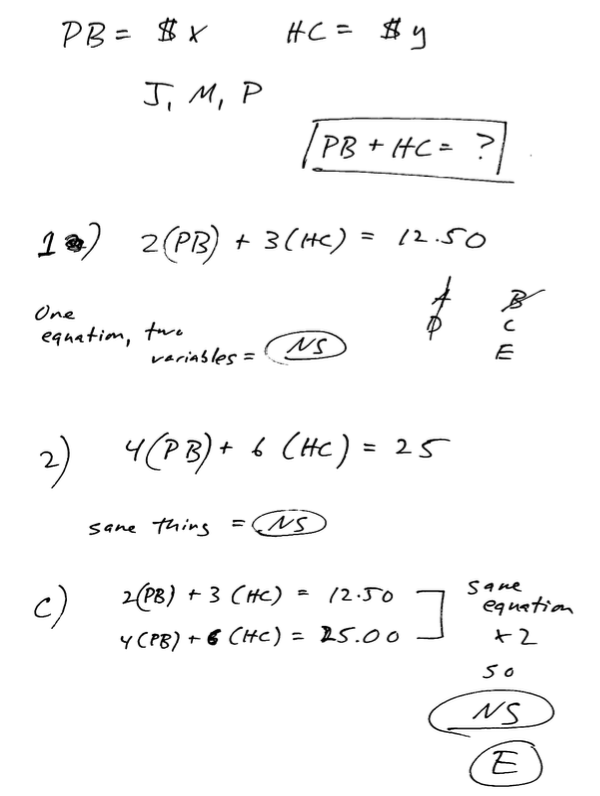 PB = $ x HC = $ y
J, M, P
PB + HC = ?
1) 2(PB) + 3(HC) = 12.50
A B
D C
E
One
equation, two
variables = NS
2) 4(PB) + 6 (HC) = 25
same thing = NS
C) 2(PB) + 3 (HC) = 12.50
4(PB) + 6 (HC) = 25.00
same
equation
x 2
so
NS
E